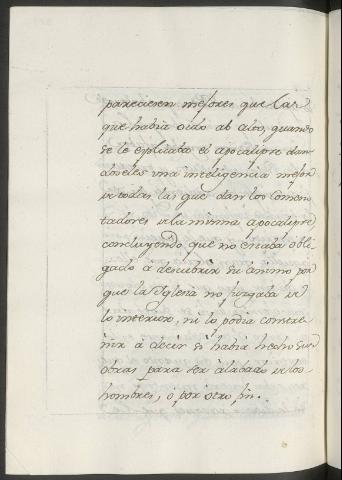 pareciesen mejores que las
que habia oido ab alto, quando
se le esplicaba el apocalipse dan
doseles una inteligencia mejor
de todas las que dan los Comen
tadores de la misma apocalipse,
concluyendo que no estaba obli
gado à descubrir su animo por
que la Iglesia no juzgaba de
lo interior, ni lo podia constre
ñir à decir si habia hecho sus
obras para ser alabado de los
hombres, o por otro fin.